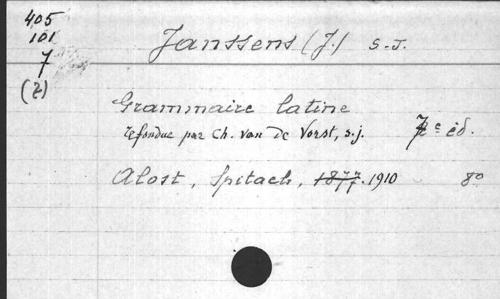 405
101
7
(2)
Janssens (J.) S.J.
Grammaire latine
refondue par Ch. van De Vorst, s.j. 7e éd.
Alost, Spitaels, 1877. 1910 8°